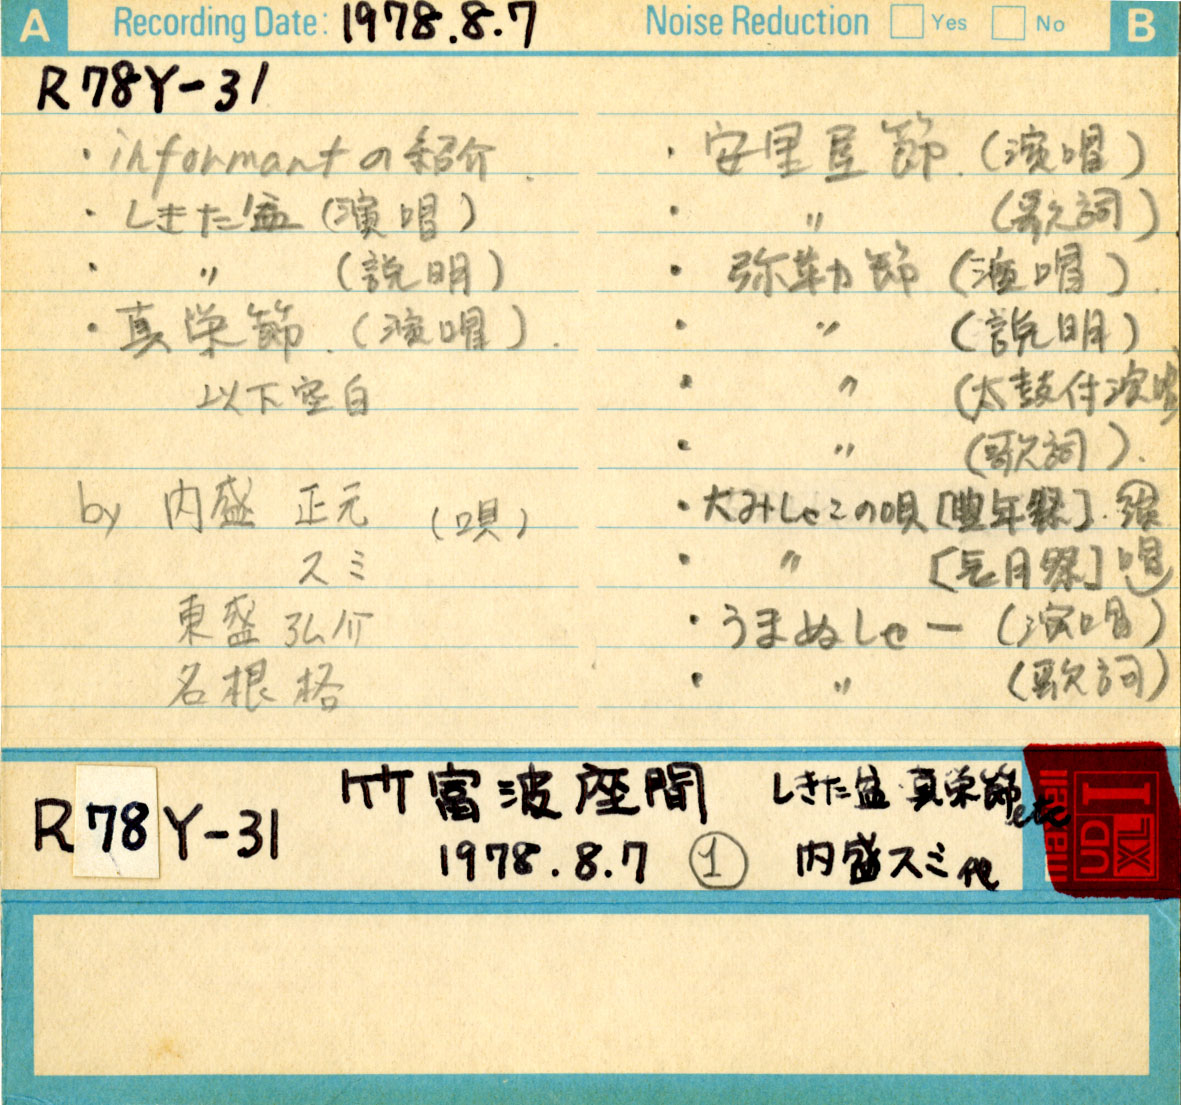 A Recording Date: 1978.8.7
Noise Reduction Yes No B
R78Y-31
・informantの紹介.
・しきた盆(演唱)
・〃(説明)
・真栄節.(演唱).
以下空白
by 内盛 正元 (唄)
スミ
東盛 弘介
名根 格
・安里屋節.(演唱)
・〃(歌詞).
・弥勒節(演唱).
・〃(説明)
・〃(太鼓付演唱)
・〃(歌詞).
・大みしゃこの唄[豊年祭].演
・〃[長月祭]唱
・うまぬしゃー(演唱)
・〃(歌詞)
R78Y-31
竹富波座間
1978.8.7 ①
しきた盆 真栄節 etc
内盛スミ他
maxell
UD
XL
I